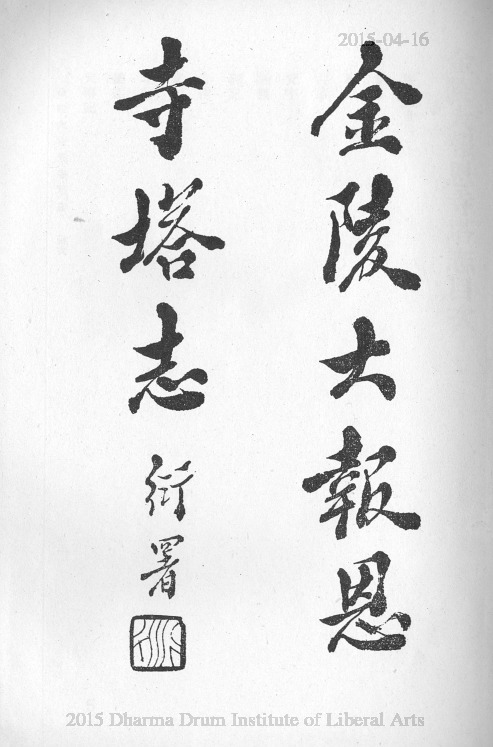 2015-04-16
金陵大報恩
寺塔志
衍署
2015 Dharma Drum Institute of Liberal Arts